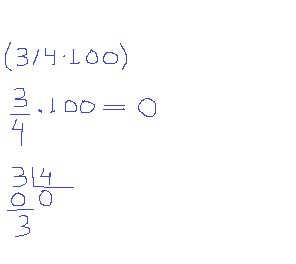 (3/4·100)
3/4 · 100 = 0
3 | 4
0 0
3